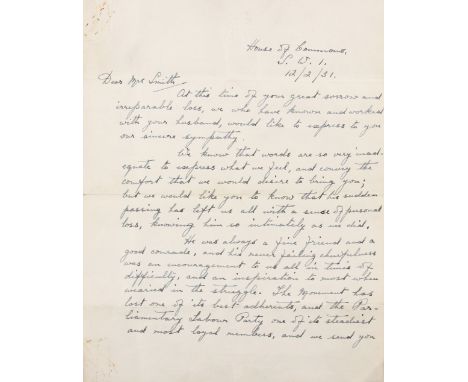 House of Commons,
S. W. 1.
12/2/31.
Dear Mrs Smith,-
At this time of your great sorrow and
irreparable loss, we who have known and worked
with your husband, would like to express to you
our sincere sympathy.
We know that words are so very inad-
equate to express what we feel, and convey the
comfort that we would desire to bring you;
but we would like you to know that his sudden
passing has left us all with a sense of personal
loss, knowing him so intimately as we did.
He was always a fine friend and a
good comrade, and his never failing cheerfulness
was an encouragement to us all in times of
difficulty, and an inspiration to most when
wearied in the struggle. The Movement has
lost one of its best adherents, and the Par-
liamentary Labour Party one of its steadiest
and most loyal members, and we send you